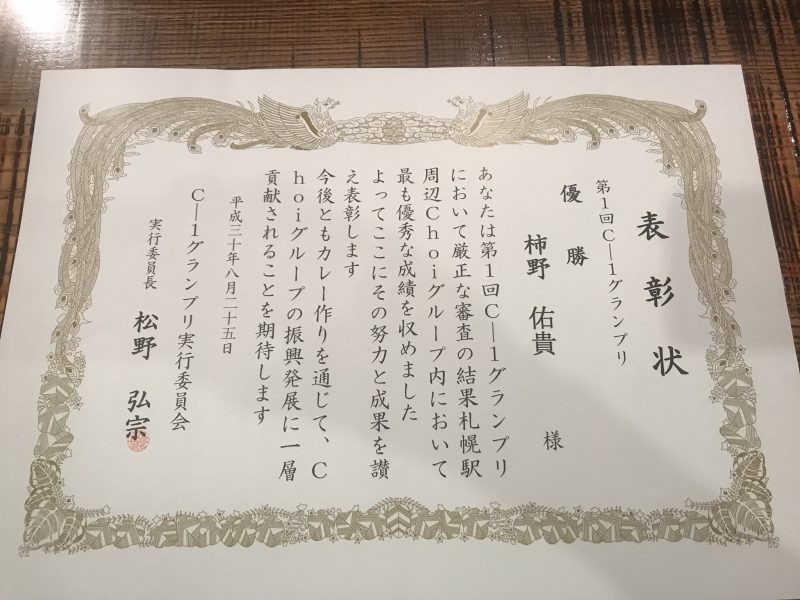 表彰状
第1回C―1グランプリ
優勝
柿野 佑貴 様
あなたは第1回C―1グランプリ
において厳正な審査の結果札幌駅
周辺Choiグループ内において
最も優秀な成績を収めました
よってここにその努力と成果を讃
え表彰します
今後ともカレー作りを通じて、C
hoiグループの振興発展に一層
貢献されることを期待します
平成三十年八月二十五日
C―1グランプリ実行委員会
実行委員長 松野 弘宗